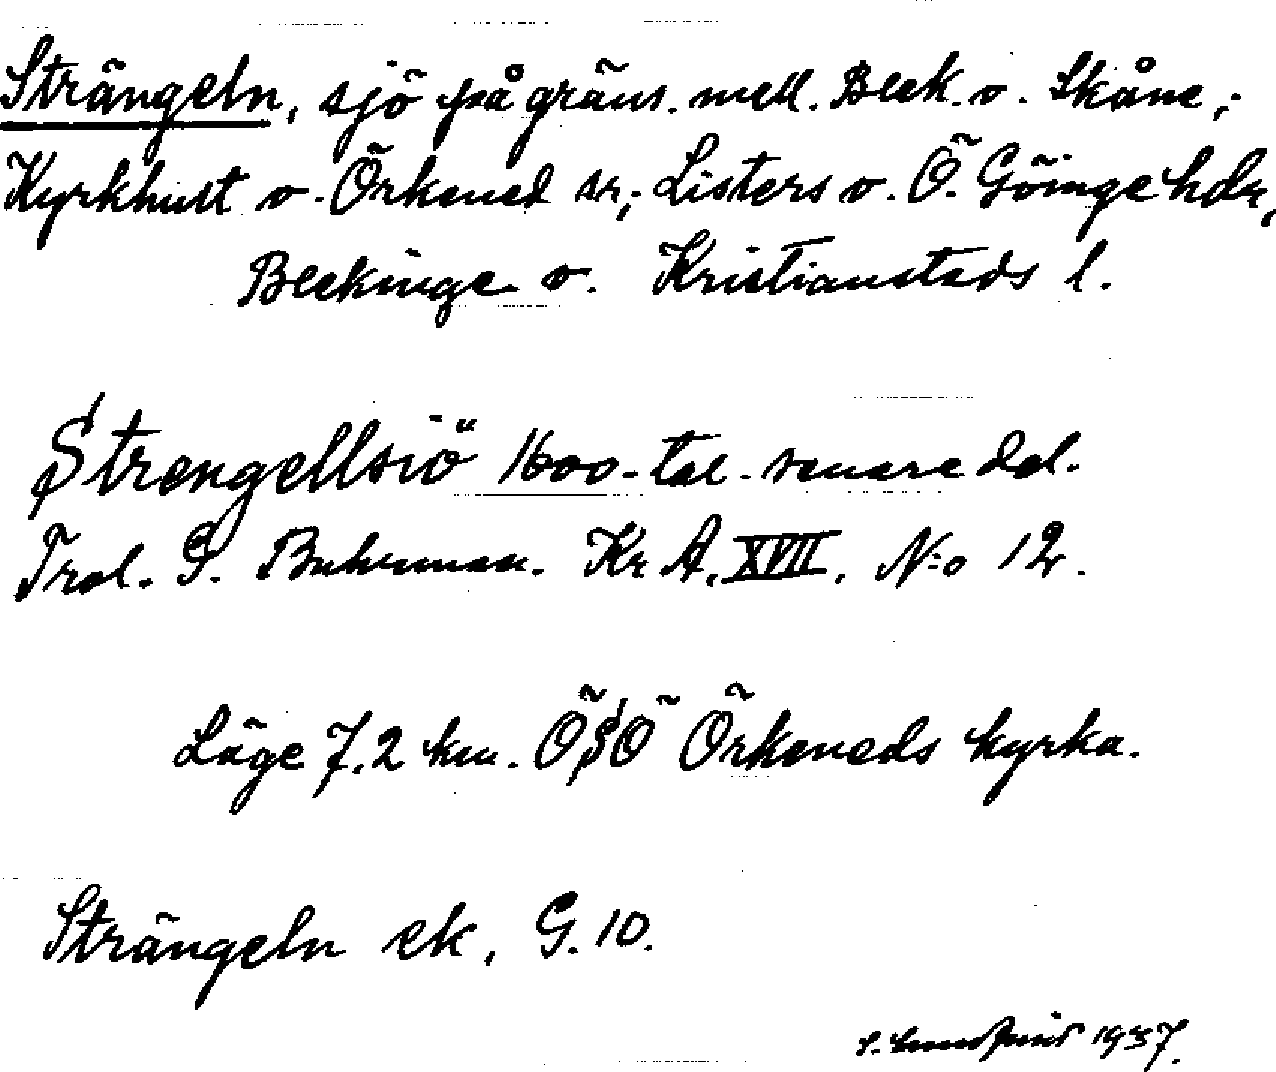 Strängeln, sjö på gräns. mell. Blek. o. Skåne,;
Kyrkhult o. Örkened sn; Listers o. Ö. Göinge hdr,
Blekinge o. Kristianstads l.
Strengellsiö 1600-tal. senare del.
Trol. G. Buhrman. Kr A. XVII. N:o 12.
Läge 7,2 km. ÖSÖ Örkeneds kyrka.
Strängeln ek, G. 10.
S. Lundquist 1937.